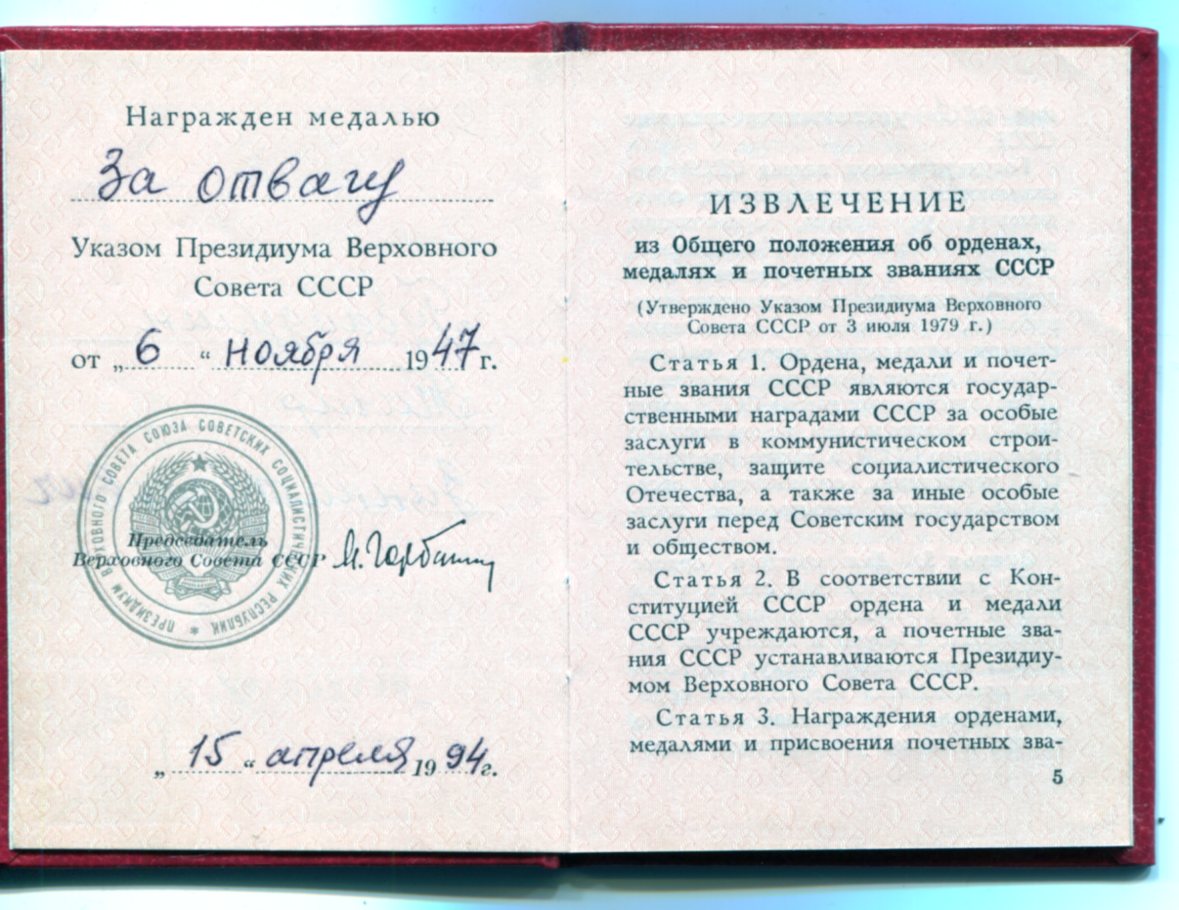 Награжден медалью
За отвагу
Указом Президиума Верховного
Совета СССР
от „ 6 “ ноября 1947 г.
ПРЕЗИДИУМ ВЕРХОВНОГО СОВЕТА СОЮЗА СОВЕТСКИХ СОЦИАЛИСТИЧЕСКИХ РЕСПУБЛИК *
Председатель
Верховного Совета СССР М. Горбачев
„ 15 “ апреля 1994 г.
ИЗВЛЕЧЕНИЕ
из Общего положения об орденах,
медалях и почетных званиях СССР
(Утверждено Указом Президиума Верховного
Совета СССР от 3 июля 1979 г.)
Статья 1. Ордена, медали и почет-
ные звания СССР являются государ-
ственными наградами СССР за особые
заслуги в коммунистическом строи-
тельстве, защите социалистического
Отечества, а также за иные особые
заслуги перед Советским государством
и обществом.
Статья 2. В соответствии с Кон-
ституцией СССР ордена и медали
СССР учреждаются, а почетные зва-
ния СССР устанавливаются Президиу-
мом Верховного Совета СССР.
Статья 3. Награждения орденами,
медалями и присвоения почетных зва-
5